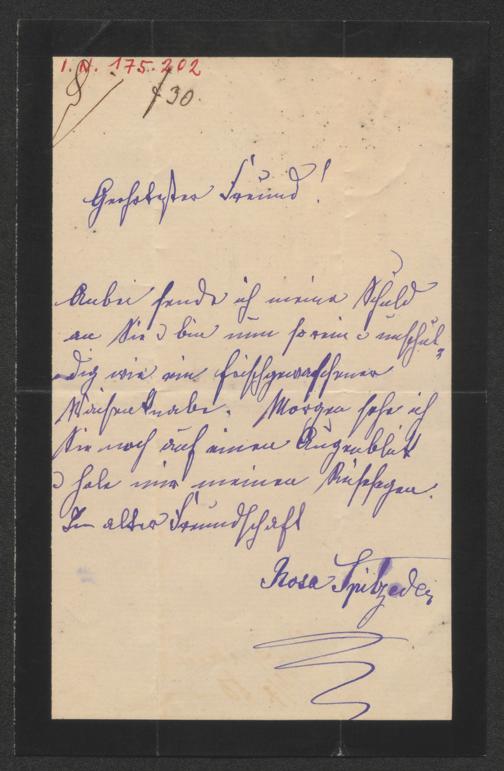 I. N. 175.202
f 30.
Geehrtester Freund!
Anbei sende ich meine Schuld
an Sie & bin nun so rein & unschul-
dig wie ein frischgewaschener
Waisenknabe. Morgen sehe ich
Sie noch auf einen Augenblick
& hole mir meinen
In alter Freundschaft
Rosa Spitzeder